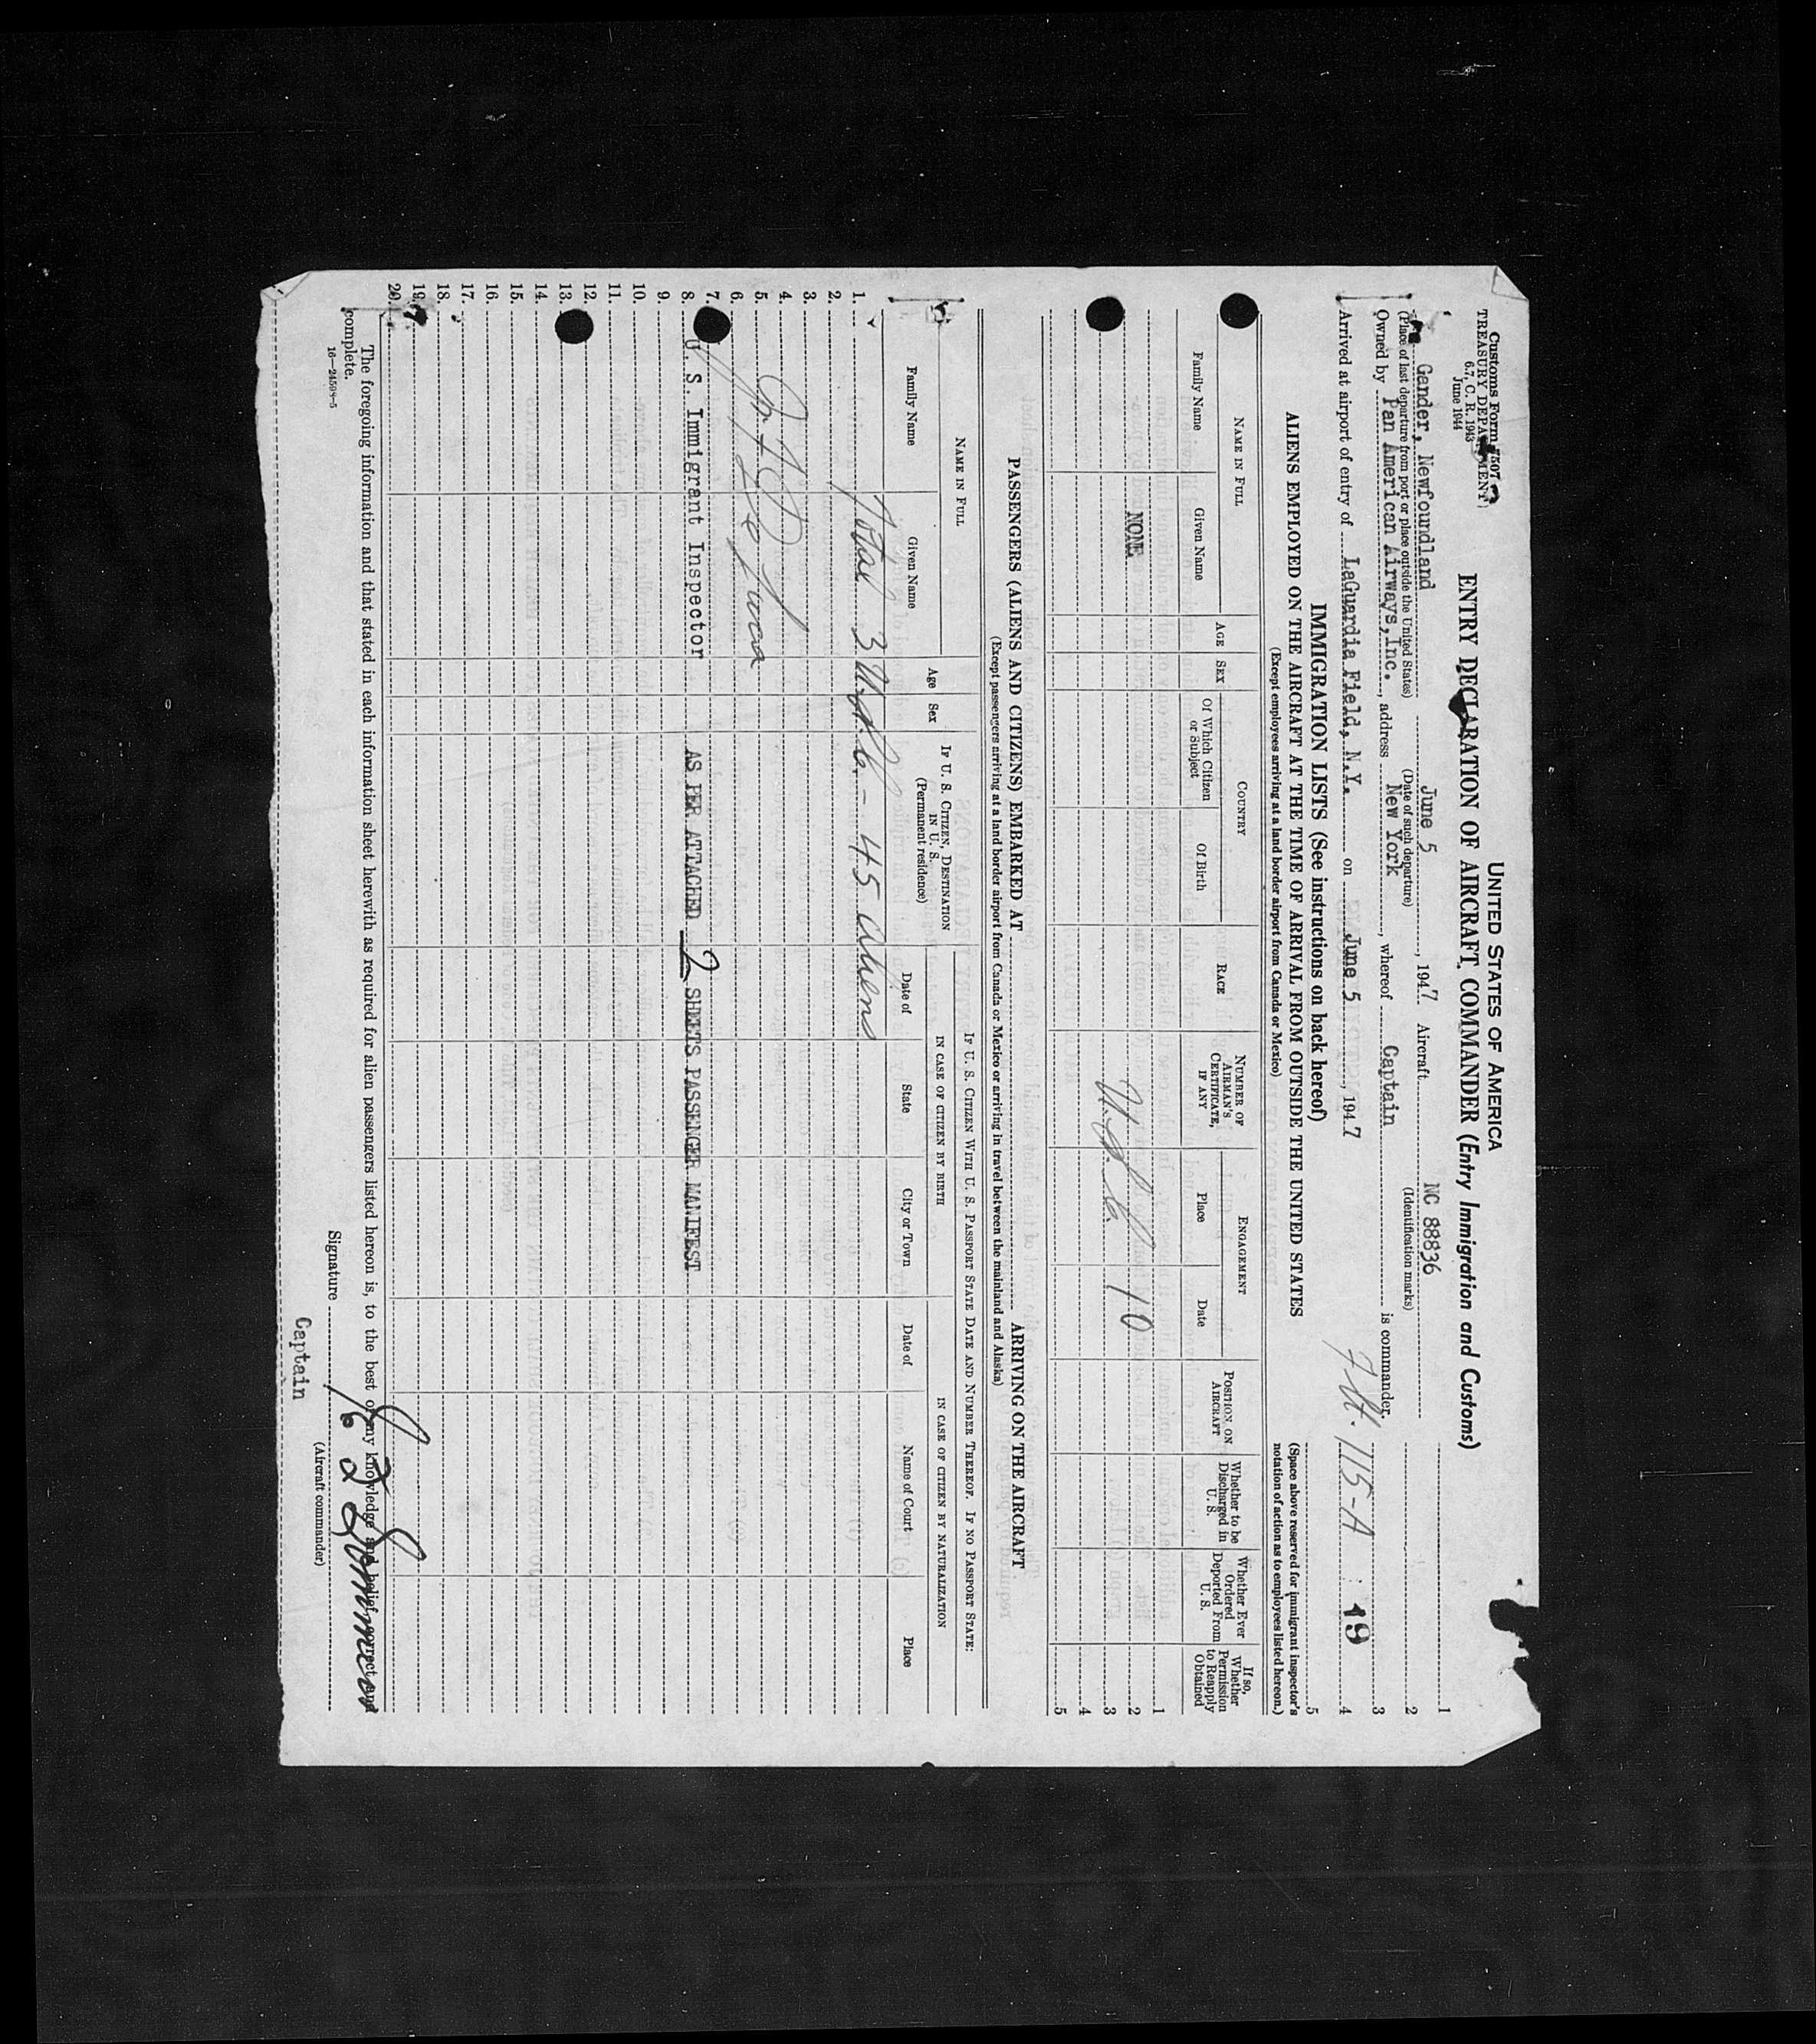 Customs Form 7507
TREASURY DEPARTMENT
6.7, C. R. 1943
June 1944
UNITED STATES OF AMERICA
ENTRY DECLARATION OF AIRCRAFT COMMANDER (Entry Immigration and Customs)
Gander, Newfoundland June 5, 1947 Aircraft NC 88836
(Place of last departure from port or place outside the United States) (Date of such departure) (Identification marks)
Owned by Pan American Airways, Inc., address New York, whereof Captain is commander.
Arrived at airport of entry of LaGuardia Field, N.Y. on June 5, 1947
Flt. 115-A
19
1
2
3
4
5
IMMIGRATION LISTS (See instructions on back hereof)
(Space above reserved for immigrant inspector's notation of action as to employees listed hereon.)
ALIENS EMPLOYED ON THE AIRCRAFT AT THE TIME OF ARRIVAL FROM OUTSIDE THE UNITED STATES
(Except employees arriving at a land border airport from Canada or Mexico)
NAME IN FULL
Family Name Given Name
AGE
SEX
COUNTRY
Of Which Citizen or Subject Of Birth
RACE
NUMBER OF AIRMAN'S CERTIFICATE, IF ANY
ENGAGEMENT
Place Date
POSITION ON AIRCRAFT
Whether to be Discharged in U. S.
Whether Ever Ordered Deported From U. S.
If so, Whether Permission to Reapply Obtained
1
NONE 2
U.S.C. 10
3
4
5
PASSENGERS (ALIENS AND CITIZENS) EMBARKED AT ARRIVING ON THE AIRCRAFT
(Except passengers arriving at a land border airport from Canada or Mexico or arriving in travel between the mainland and Alaska)
NAME IN FULL
Family Name Given Name
Age
Sex
IF U. S. CITIZEN, DESTINATION IN U. S.
(Permanent residence)
IF U. S. CITIZEN WITH U. S. PASSPORT STATE DATE AND NUMBER THEREOF. IF NO PASSPORT STATE:
IN CASE OF CITIZEN BY BIRTH
Date of State City or Town
IN CASE OF CITIZEN BY NATURALIZATION
Date of Name of Court Place
1. Total 3 U.S.C. - 45 aliens
2.
3.
4.
5.
6.
7.
8. U. S. Immigrant Inspector AS PER ATTACHED 2 SHEETS PASSENGER MANIFEST
9.
10.
11.
12.
13.
14.
15.
16.
17.
18.
19.
20.
The foregoing information and that stated in each information sheet herewith as required for alien passengers listed hereon is, to the best of my knowledge and belief, correct and complete.
16—24598-5
Signature
(Aircraft commander)
Captain